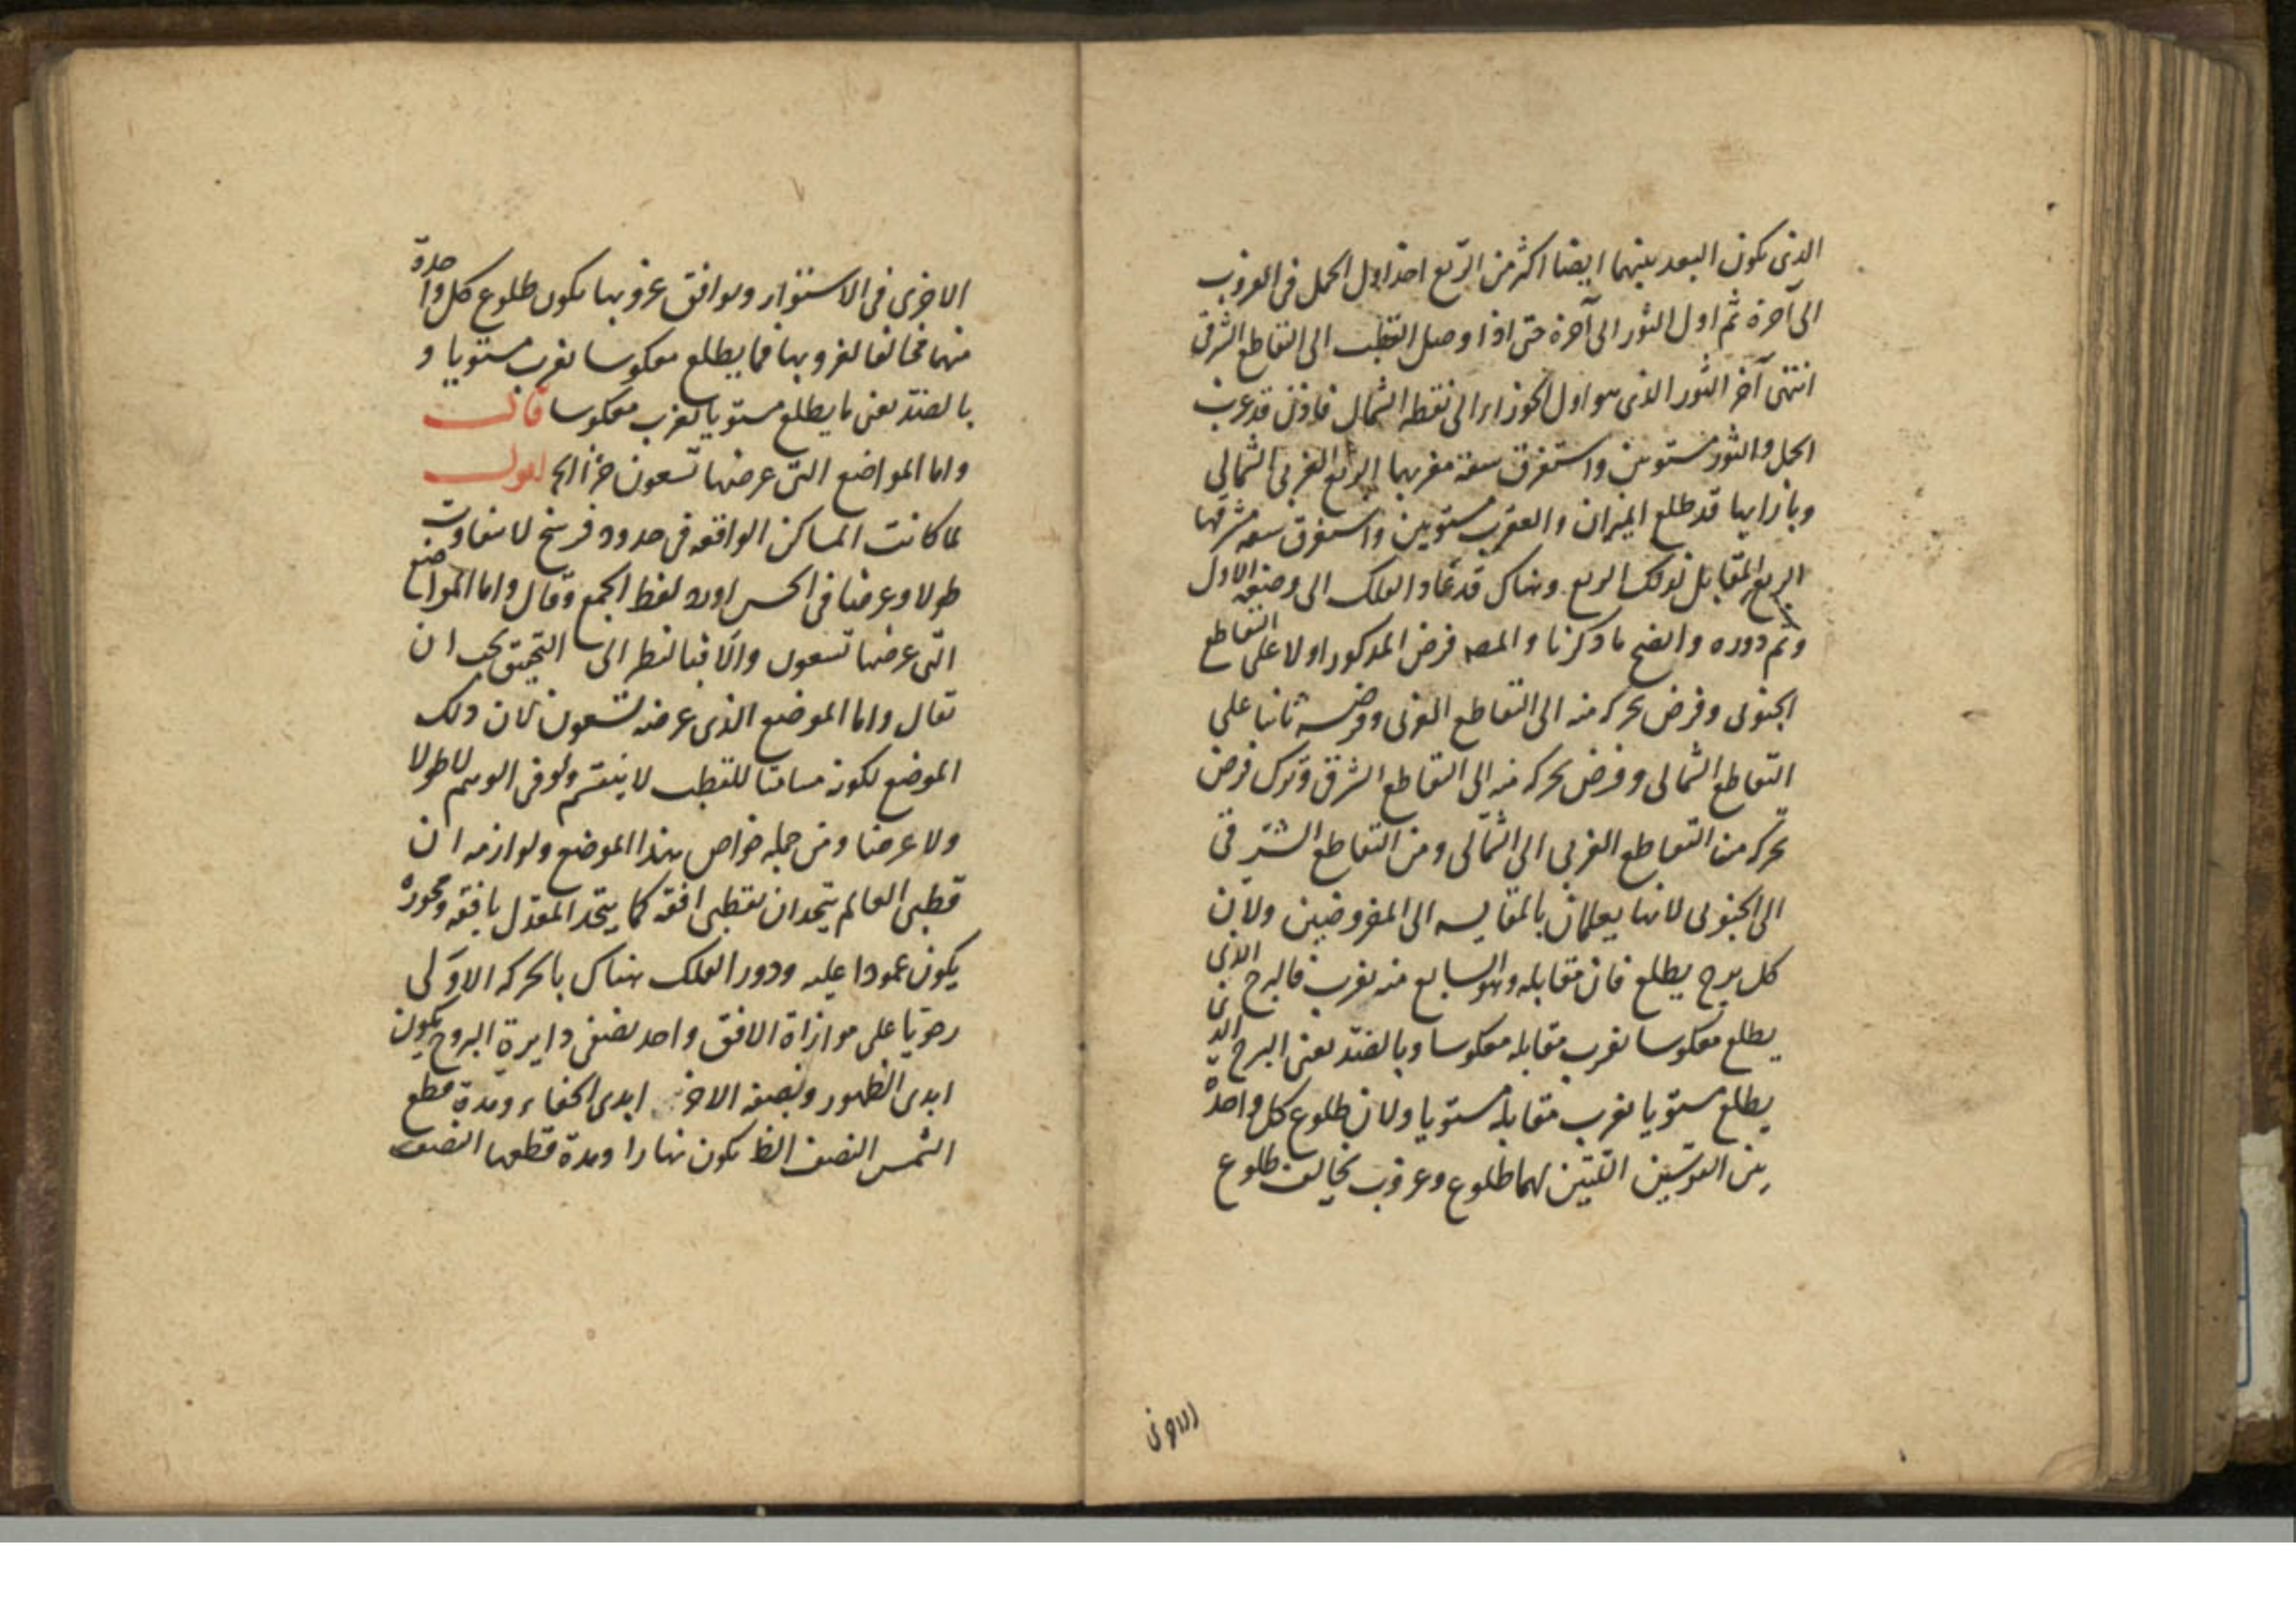 الذى يكون البعد بينهما ايضا اكثر من الربع اخذ اول الحمل فى الغروب
الى آخره ثم اول الثور الى آخره حتى اذا وصل القطب الى التقاطع الشرقى
انتهى آخر الثور الذى هو اول الجوزاء الى نقطه الشمال فاذن قد غرب
الحمل والثور مستويين واستغرق سعة مغربهما الربع الغربى الشمالي
وبازايهما قد طلع الميزان والعقرب مستويين واستغرق سعه مشرقهما
الربع المقابل لذلك الربع وهناك قد عاد الفلك الى وضعه الاول
وتم دوره واتضح ما ذكرنا والمصـ فرض المذكور اولا على التقاطع
الجنوبى وفرض تحركه منه الى التقاطع الغربى وفرضه ثانيا على
التقاطع الشمالى وفرض تحركه منه الى التقاطع الشرقى وترك فرض
تحركه من التقاطع الغربى الى الشمالى ومن التقاطع الشرقى
الى الجنوبى لانهما يعلمان بالمقايسه الى المفروضين ولان
كل برج يطلع فان مقابله وهو السابع منه يغرب فالبرج الذى
يطلع معكوسا يغرب مقابله معكوسا وبالضد يعنى البرج الذى
يطلع مستويا يغرب مقابله مستويا ولان طلوع كل واحدة
من القوسين اللتين لهما طلوع وغروب يخالف طلوع
الاخرى
الاخرى فى الاستواء ويوافق غروبها يكون طلوع كل واحدة
منهما مخالفا لغروبها فما يطلع معكوسا يغرب مستويا و
بالضد يعنى ما يطلع مستويا يغرب معكوسا قال
واما المواضع التى عرضها تسعون جزءا الخ اقول
لما كانت المساكن الواقعه فى حدود فرسخ لا يتفاوت
طولا وعرضا فى الحس اورد لفظ الجمع وقال واما المواضع
التى عرضها تسعون والا فبالنظر الى التحقيق يجب ان
يقال واما الموضع الذى عرضه تسعون لان ذلك
الموضع لكونه مسامتا للقطب لا ينقسم ولو فى الوهم لا طولا
ولا عرضا ومن جمله خواص هذا الموضع ولوازمه ان
قطبى العالم يتحدان بقطبى افقه كما يتحد المعدل بافقه ومحوره
يكون عمودا عليه ودور الفلك هناك بالحركه الاولى
رحويا على موازاة الافق واحد نصفى دايرة البروج يكون
ابدى الظهور ونصفه الاخر ابدى الخفاء ومدة قطع
الشمس النصف الظ يكون نهارا ومدة قطعها النصف